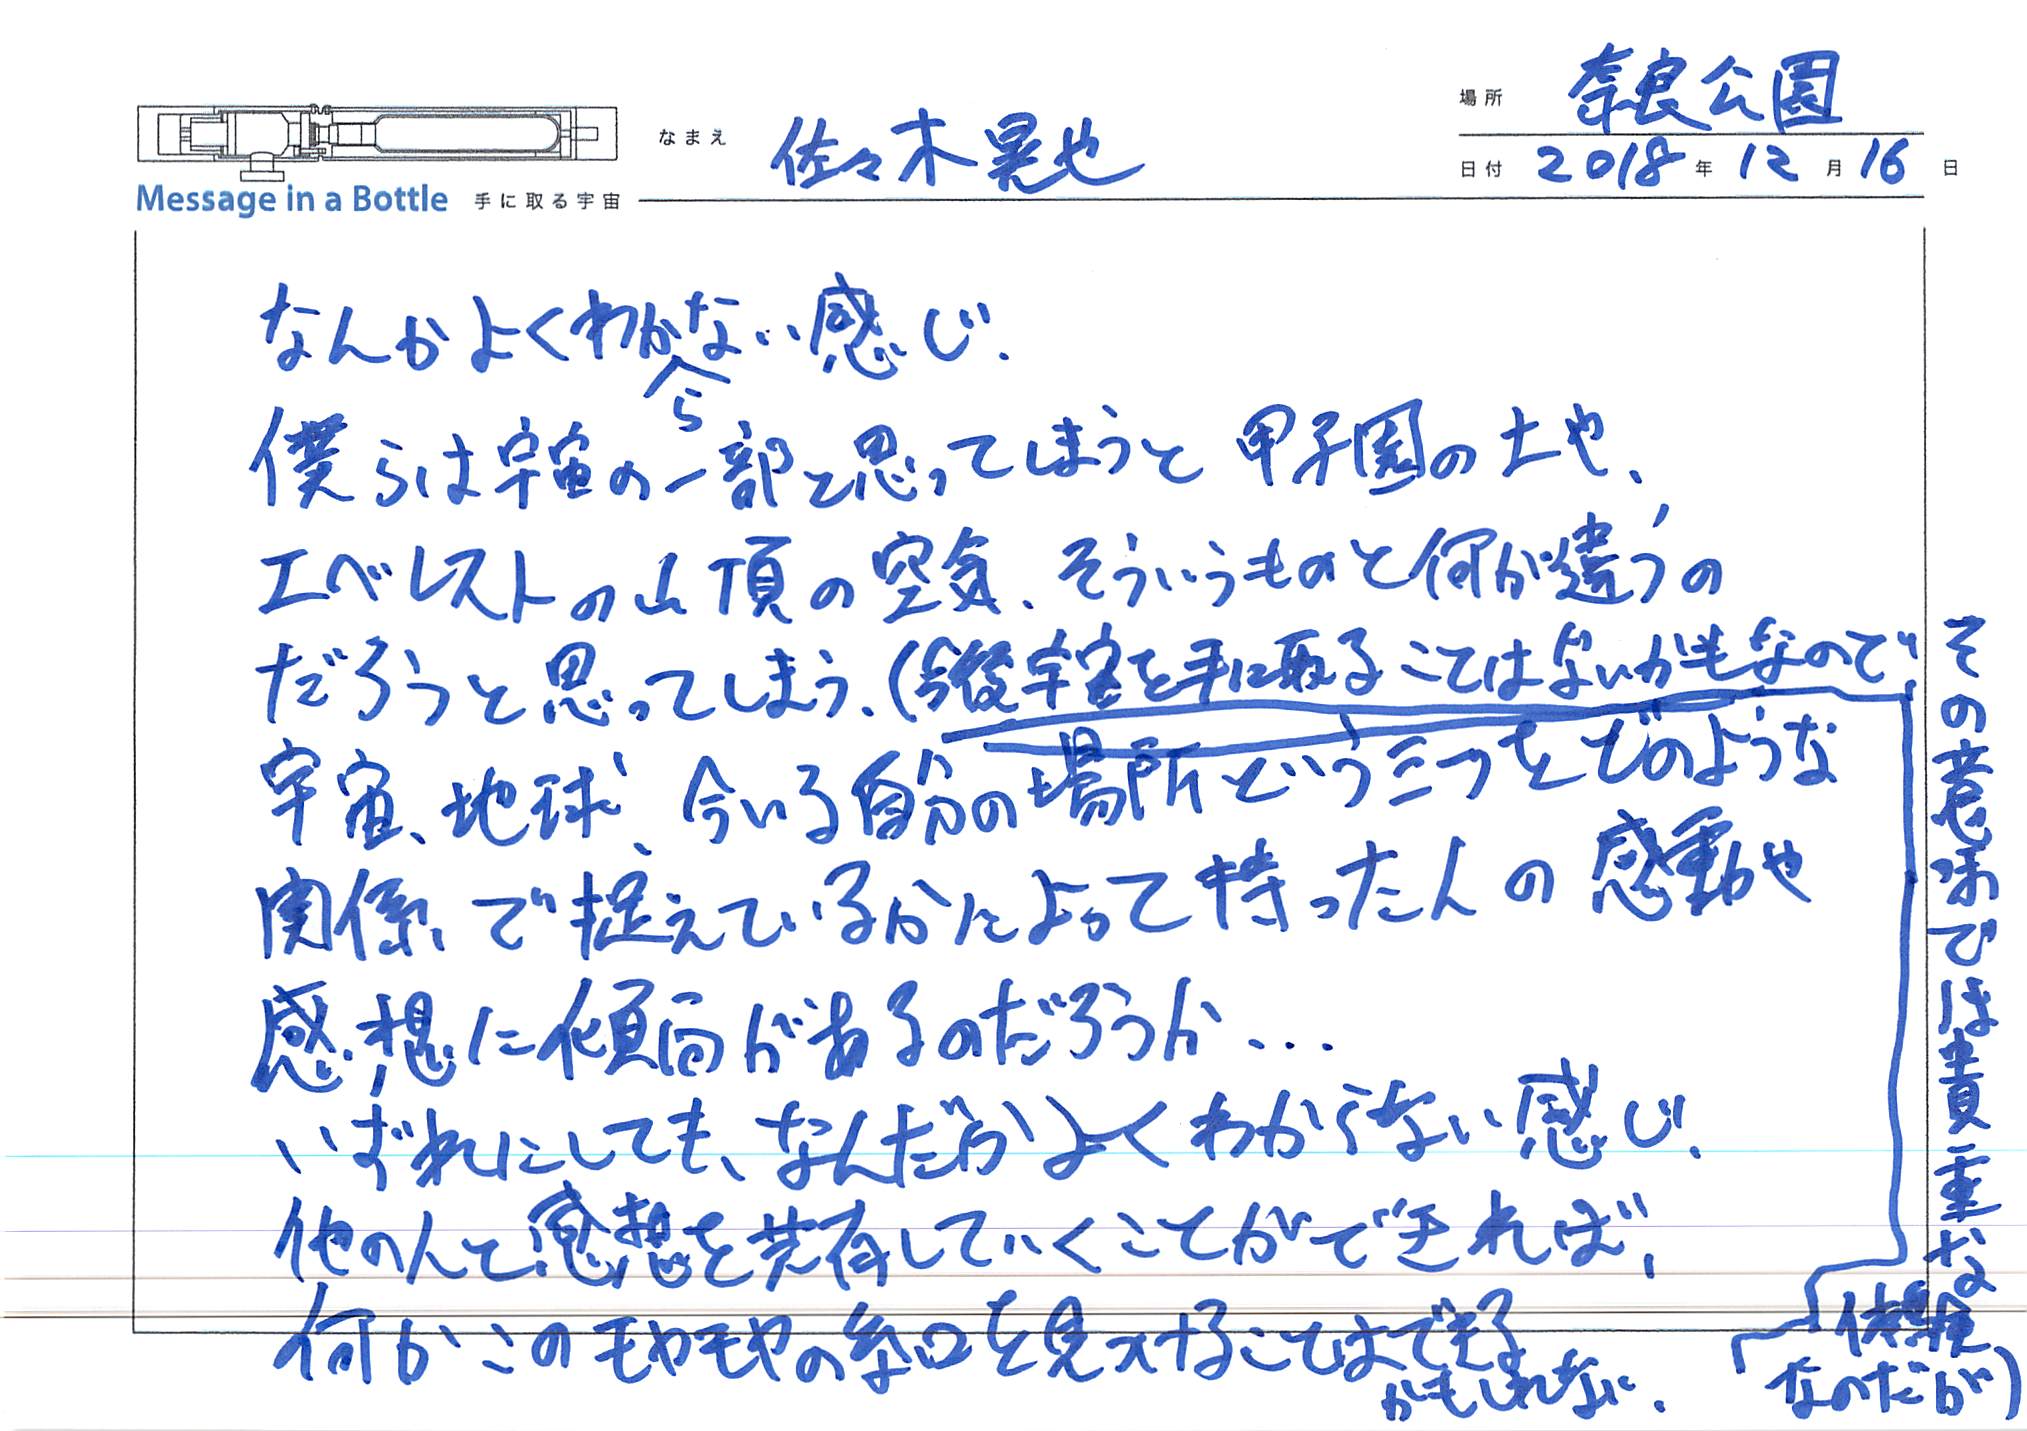 場所 奈良公園
なまえ 佐々木晃也
日付 2018年12月16日
Message in a Bottle 手に取る宇宙
なんかよくわからない感じ.
僕らは宇宙の一部と思ってしまうと甲子園の土や、
エベレストの山頂の空気、そういうものと何が違うの
だろうと思ってしまう.(今後宇宙を手に取ることはないかもなので、
その意味では貴重な
体験
なのだが)
宇宙、地球、今いる自分の場所という三つをどのような
関係で捉えているかによって持った人の感動や
感想に傾向があるのだろうか...
いずれにしても、なんだかよくわからない感じ.
他の人と感想を共有していくことができれば、
何かこのモヤモヤの糸口を見つけることはできる
かもしれない.